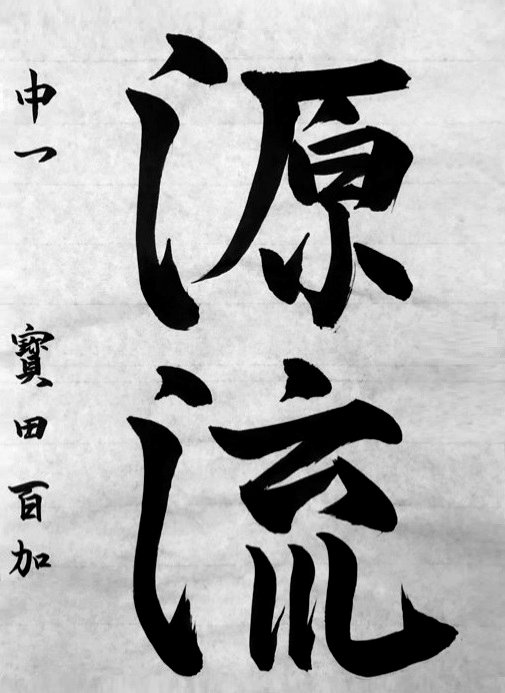 源流
中一 寳田百加